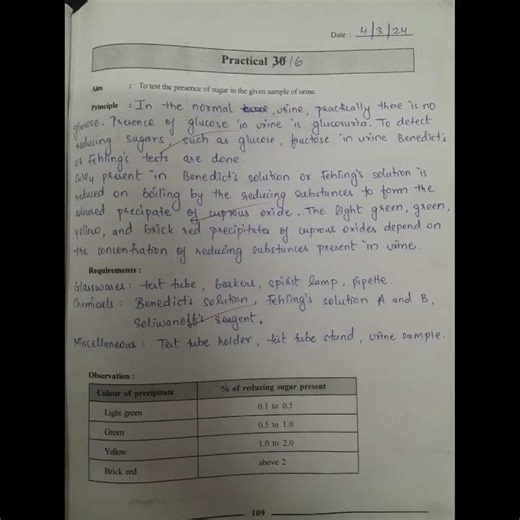 Date : 4/3/24
Practical 30 16
Aim : To test the presence of sugar in the given sample of urine.
Principle : In the normal urine, practically there is no
glucose. Presence of glucose in urine is glucosuria. To detect
reducing sugars, such as glucose, fructose in urine Benedict's
or Fehling's tests are done.
present in Benedict's solution or Fehling's solution is
reduced on boiling by the reducing substances to form the
coloured precipate of cuprous oxide. The light green, green,
yellow, and brick red precipitates of cuprous oxides depend on
the concentration of reducing substances present in urine.
Requirements :
Glasswares : test tube, beakers, spirit lamp, pipette.
Chemicals : Benedict's solution, Fehling's solution A and B,
Seliwanoff's reagent.
Miscellaneous : Test tube holder, test tube stand, urine sample.
Observation :
Colour of precipitate % of reducing sugar present
Light green 0.1 to 0.5
Green 0.5 to 1.0
Yellow 1.0 to 2.0
Brick red above 2
109